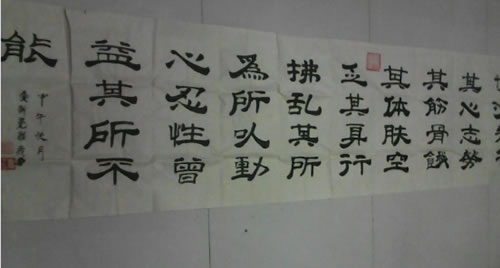 其心志劳
其筋骨餓
其体肤空
乏其身行
拂乱其所
為所以動
心忍性曾
益其所不
能
甲午